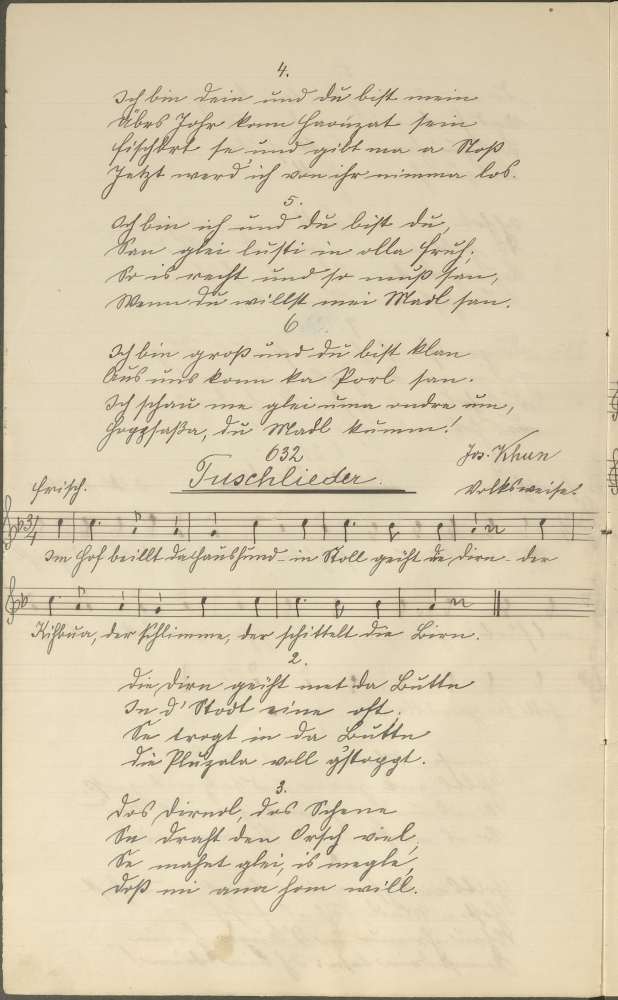 4.
Ich bin dein und du bist mein
Übrs Johr konn Haouzat sein
Fischkrt se und gibt ma a Stoß
Jetzt werd' ich von ihr nimma los.
5.
Ich bin ich und du bist du,
San glei lusti in olla Fruh;
So is recht und so muß san,
Wenn du willst mei Madl san.
6.
Ich bin groß und du bist klan
Aus uns konn ka Porl san.
Ich schau me glei uma ondre um,
Hoppsaßa, du Madl kumm!
632
Jos. Khun
Tuschlieder.
Frisch.
Volksweise.
Im Hof beillt da Haushund in Stoll geiht de Dirn der
Kihbua, der Schlimme, der schittelt die Birn.
2.
Die Dirn geiht met da Butte
In d' Stodt eine oft.
Se trogt in da Butte
Die Pluzala voll g'stoppt.
3.
Das Dirndl, das Schene
Se draht den Orsch viel,
Se mahnt glei, is megle,
Doß mi ana hom will.